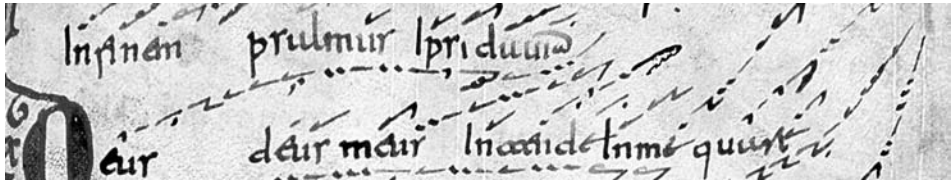 In finem psalmus Ipsi dauid
Deus deus meus Intende In me quare